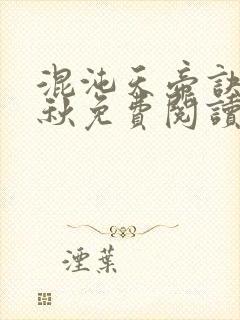 混沌天帝訣
秋免費閱讀
湮葉